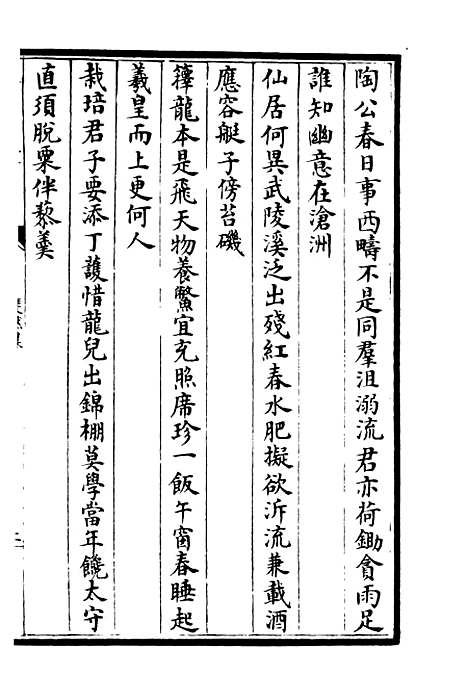 陶公春日事西疇不是同羣沮溺流君亦荷鋤貪雨足
誰知幽意在滄洲
仙居何異武陵溪泛出殘紅春水肥擬欲泝流兼載酒
應容艇子傍苔磯
籜龍本是飛天物養鱉宜充照席珍一飯午窗春睡起
羲皇而上更何人
栽培君子要添丁護惜龍兒出錦棚莫學當年饞太守
直須脫粟伴藜羹